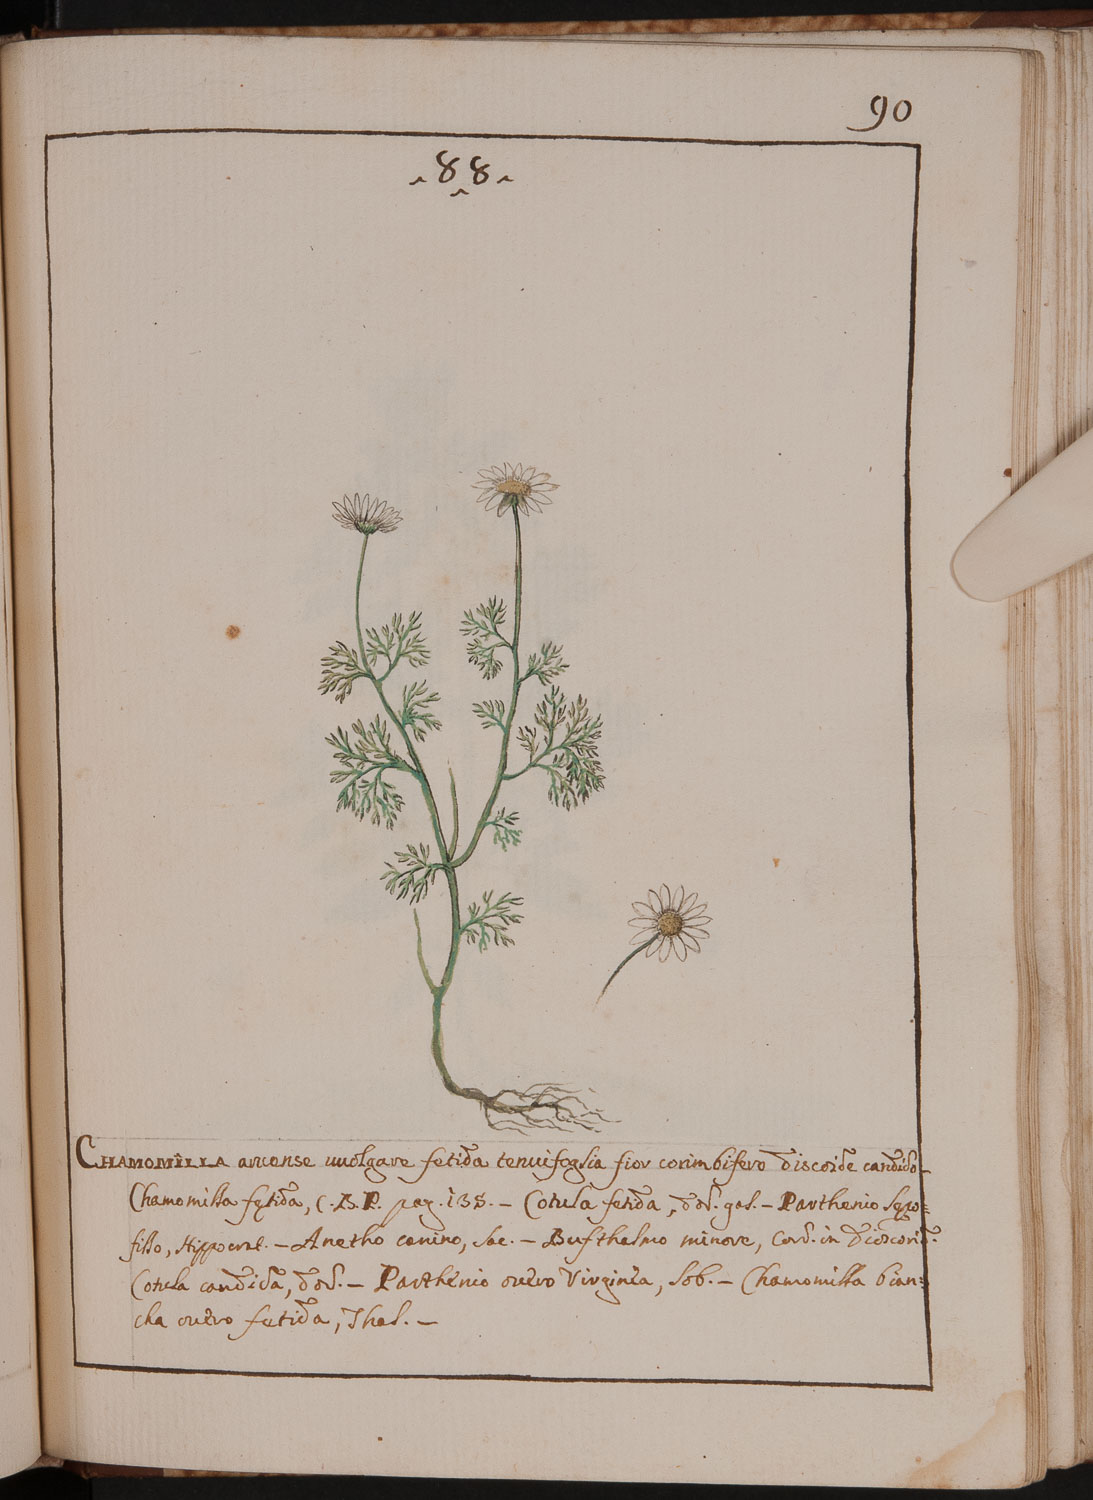 90
88
CHAMOMILLA aruense uuolgare fetida tenuifoglia fior corimbifero discoide candido -
Chamomilla fętida, C.B.P. pag. 135. - Cotula fetida, dod. gal. - Parthenio
fillo, Hippocrat. - Anetho canino, Sae. - Bufthalmo minore, Cord. in dioscorid.
Cotula candida, dod. - Parthenio ouero Virginia, Lob. - Chamomilla bian=
cha ouero fętida, Thal. -